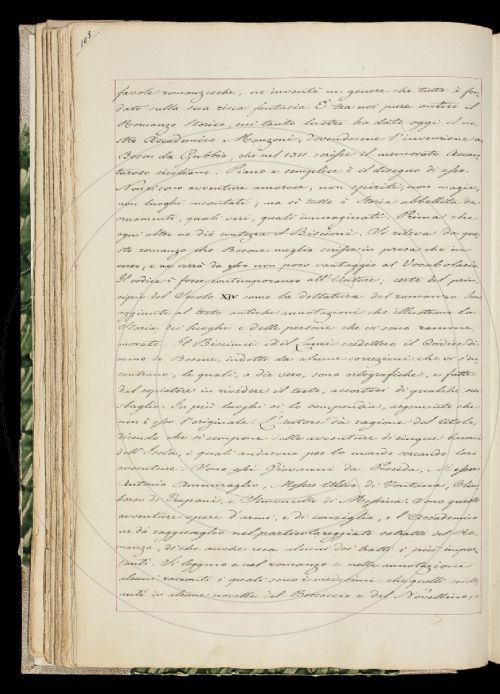 108
favole romanzesche, ne inventò un genere che tutto è fon
dato sulla sua ricca fantasia. E' tra noi pure antico il
Romanzo Storico, cui tanto lustro ha dato oggi il no
stro Accademico Manzoni, dovendosene l'invenzione a
Boson da Gubbio, che nel 1311 scrisse il memorato Avven
turoso ciciliano. Piano e semplice è il disegno di esso.
Non vi sono avventure amorose, non spiriti, non magie,
non luoghi incantati; ma si tutto è Storia abbellita da
ornamenti, quali veri, quali immaginati. Prima che
ogni altro ne diè contezza il Biscioni. Si rileva da que
sto romanzo che Bosone meglio scrisse in prosa che in
verso, e ne verrà da esso non poco vantaggio al Vocabolario.
Il codice è forse contemporaneo all'Autore; certo del prin
cipio del Secolo XIV come la dettatura del romanzo. Sono
aggiunte al testo antiche annotazioni che illustrano la
Storia dei luoghi e delle persone che vi sono ramme
morate. Il Biscioni ed il Lami credettero il Codice di
mano di Bosone, indotti da alcune correzioni che vi s'in
contrano, le quali, a dir vero, sono ortografiche, e fatte
dal copiatore in rivedere il testo, accortosi di qualche suo
sbaglio. In più luoghi vi lo compendia, argomento che
non è esso l'originale. L'autore dà ragione del titolo,
dicendo che si compone delle avventure di cinque baroni
dell'Isola, i quali andarono per lo mondo cercando loro
avventure. Sono essi Giovanni da Procida,
Antonio Ammiraglio, Messer Ulivo di Fontana,
di Trapani, e Simonetto di Messina. Sono queste
avventure opere d'armi, e di consiglio, e l'Accademico
ne dà ragguaglio nel particolareggiato estratto del Ro
manzo, di che anche reca alcuni dei tratti i più impor
tanti. Si leggono e nel romanzo e nelle annotazioni
alcuni racconti i quali sono i medesimi che quelli conte
nuti in alcune novelle del Boccaccio e del Novellino;